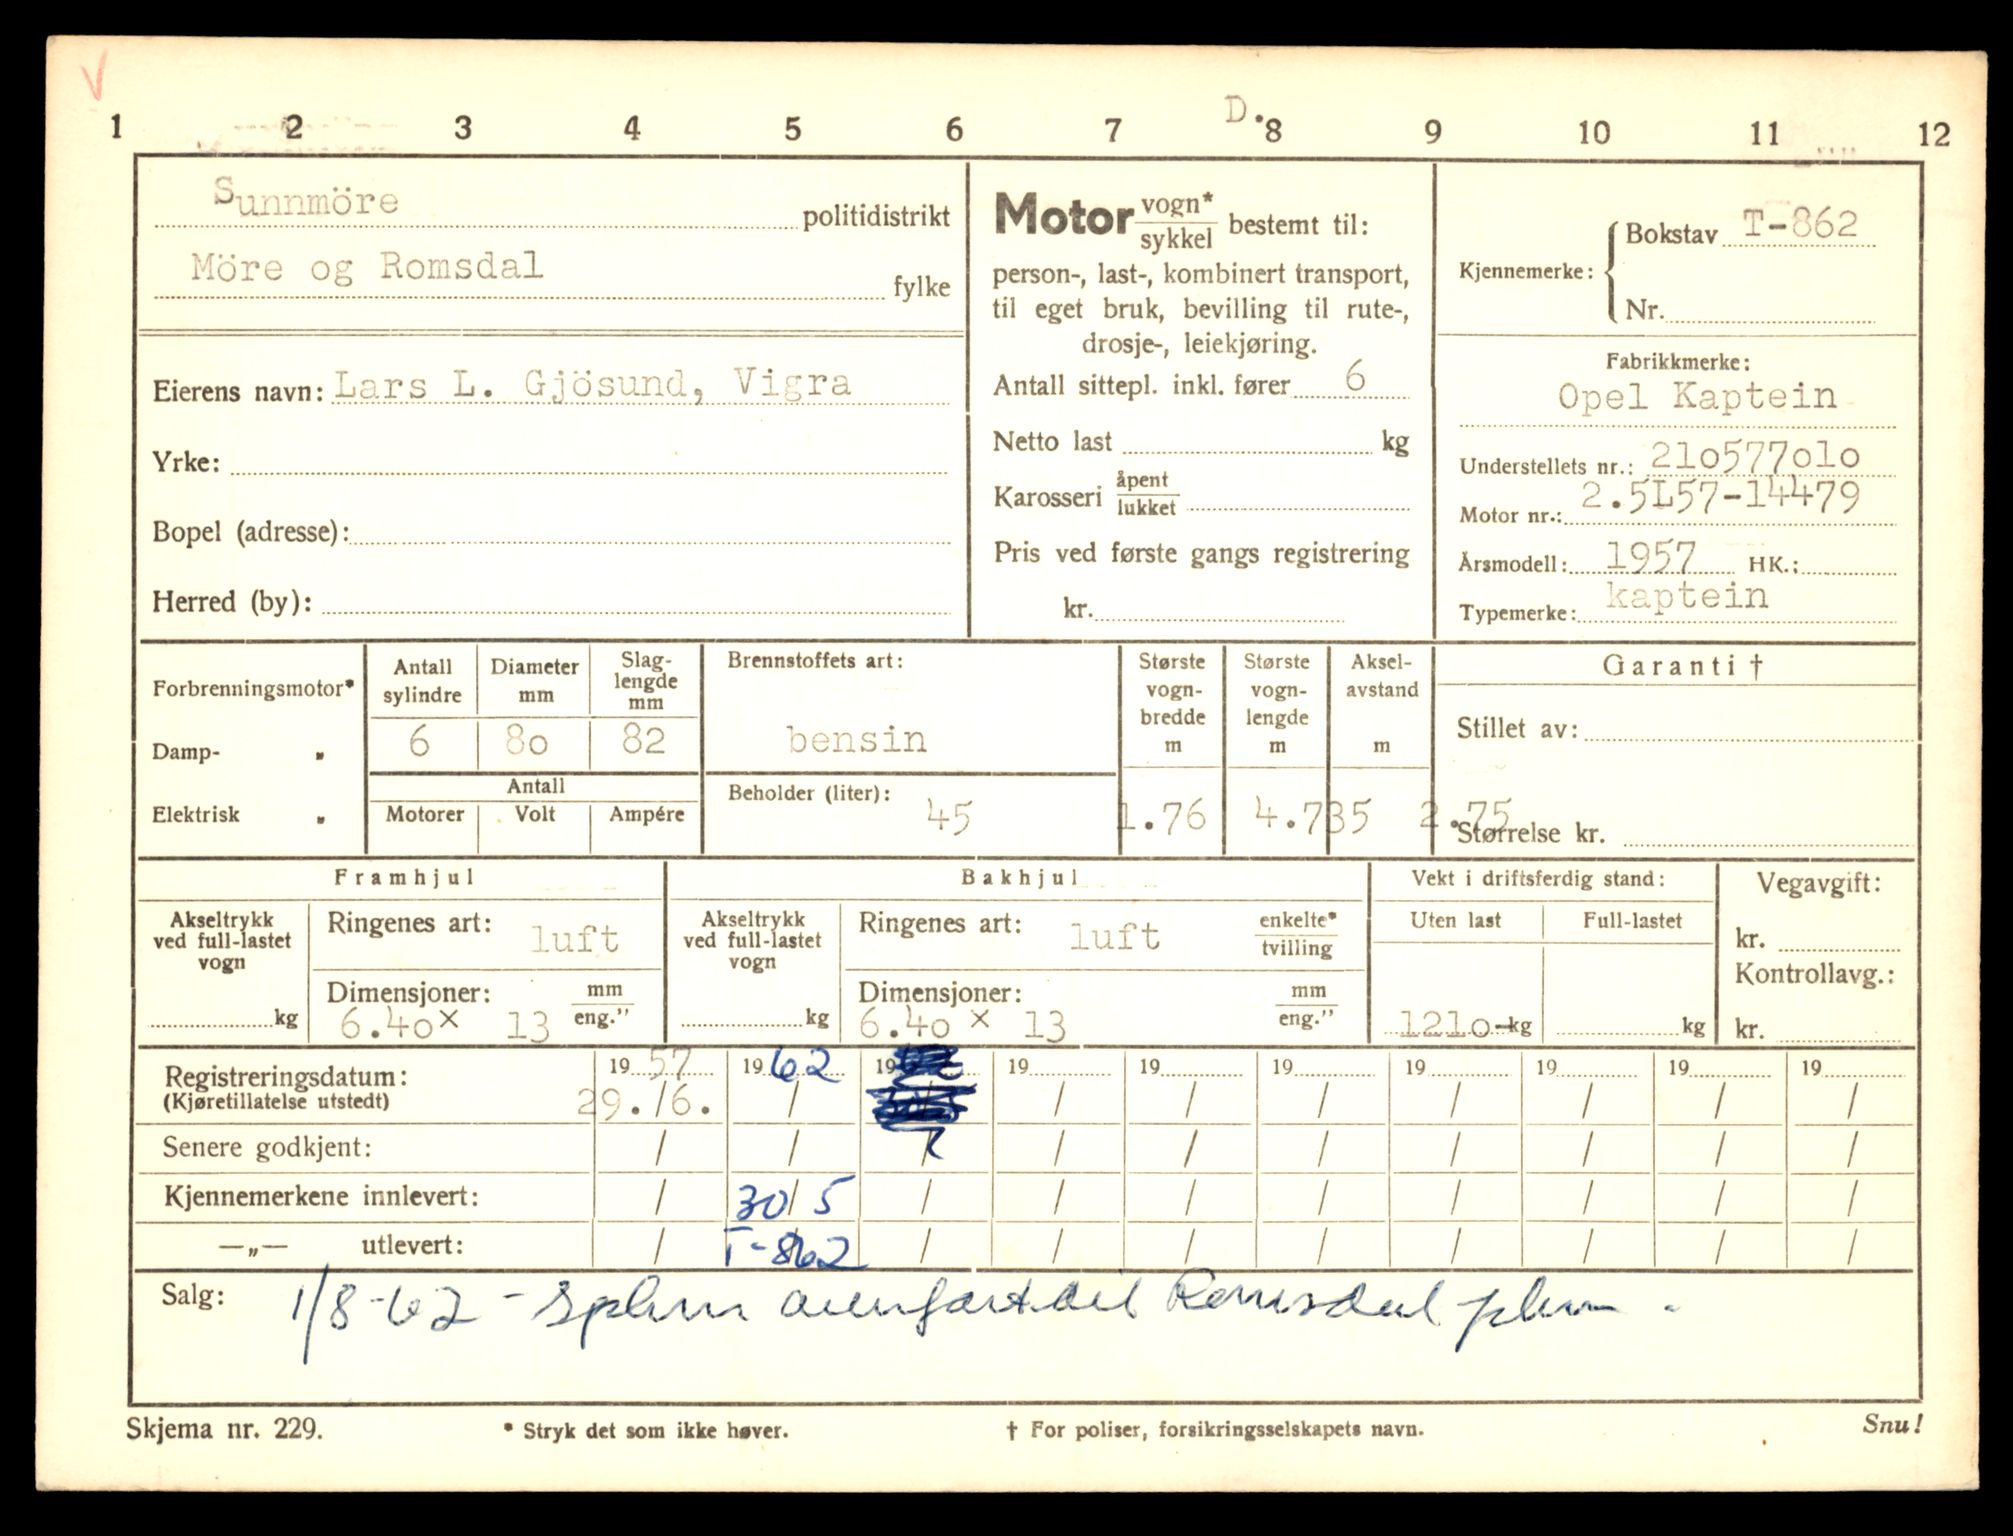 V
1 2 3 4 5 6 7 D. 8 9 10 11 12
Sunnmöre politidistrikt
Möre og Romsdal fylke
Eierens navn: Lars L. Gjösund, Vigra
Yrke:
Bopel (adresse):
Herred (by):
Motor vogn* sykkel bestemt til:
person-, last-, kombinert transport,
til eget bruk, bevilling til rute-,
drosje-, leiekjøring.
Antall sittepl. inkl. fører 6
Netto last kg
Karosseri åpent lukket
Pris ved første gangs registrering
kr.
Kjennemerke: Bokstav T-862
Nr.
Fabrikkmerke:
Opel Kaptein
Understellets nr.: 21o577o1o
Motor nr.: 2.5L57-14479
Årsmodell: 1957 HK.:
Typemerke: kaptein
Forbrenningsmotor*
Damp- „
Elektrisk „
Antall sylindre 6
Diameter mm 8o
Slag-
lengde
mm
82
Antall
Motorer Volt Ampére
Brennstoffets art:
bensin
Beholder (liter): 45
Største
vogn-
bredde
m
1.76
Største
vogn-
lengde
m
4.735
Aksel-
avstand
m
2.75
Garanti †
Stillet av:
Størrelse kr.
Framhjul
Akseltrykk
ved full-lastet
vogn
kg
Ringenes art: luft
Dimensjoner: mm
6.4o x 13 eng."
Bakhjul
Akseltrykk
ved full-lastet
vogn
kg
Ringenes art: luft enkelte* tvilling
Dimensjoner: mm
6.4o x 13 eng."
Vekt i driftsferdig stand:
Uten last Full-lastet
121o-kg kg
Vegavgift:
kr.
Kontrollavg.:
kr.
Registreringsdatum: 19 57 19 62 19 19 19 19 19 19 19 19
(Kjøretillatelse utstedt) 29./6. / / / / / / / /
Senere godkjent: / / / / / / / / / /
Kjennemerkene innlevert: / 30/5 / / / / / / / /
—„— utlevert: / T-862 / / / / / / / /
Salg: 1/8-62 - Romsdal
Skjema nr. 229.
* Stryk det som ikke høver.
† For poliser, forsikringsselskapets navn.
Snu!